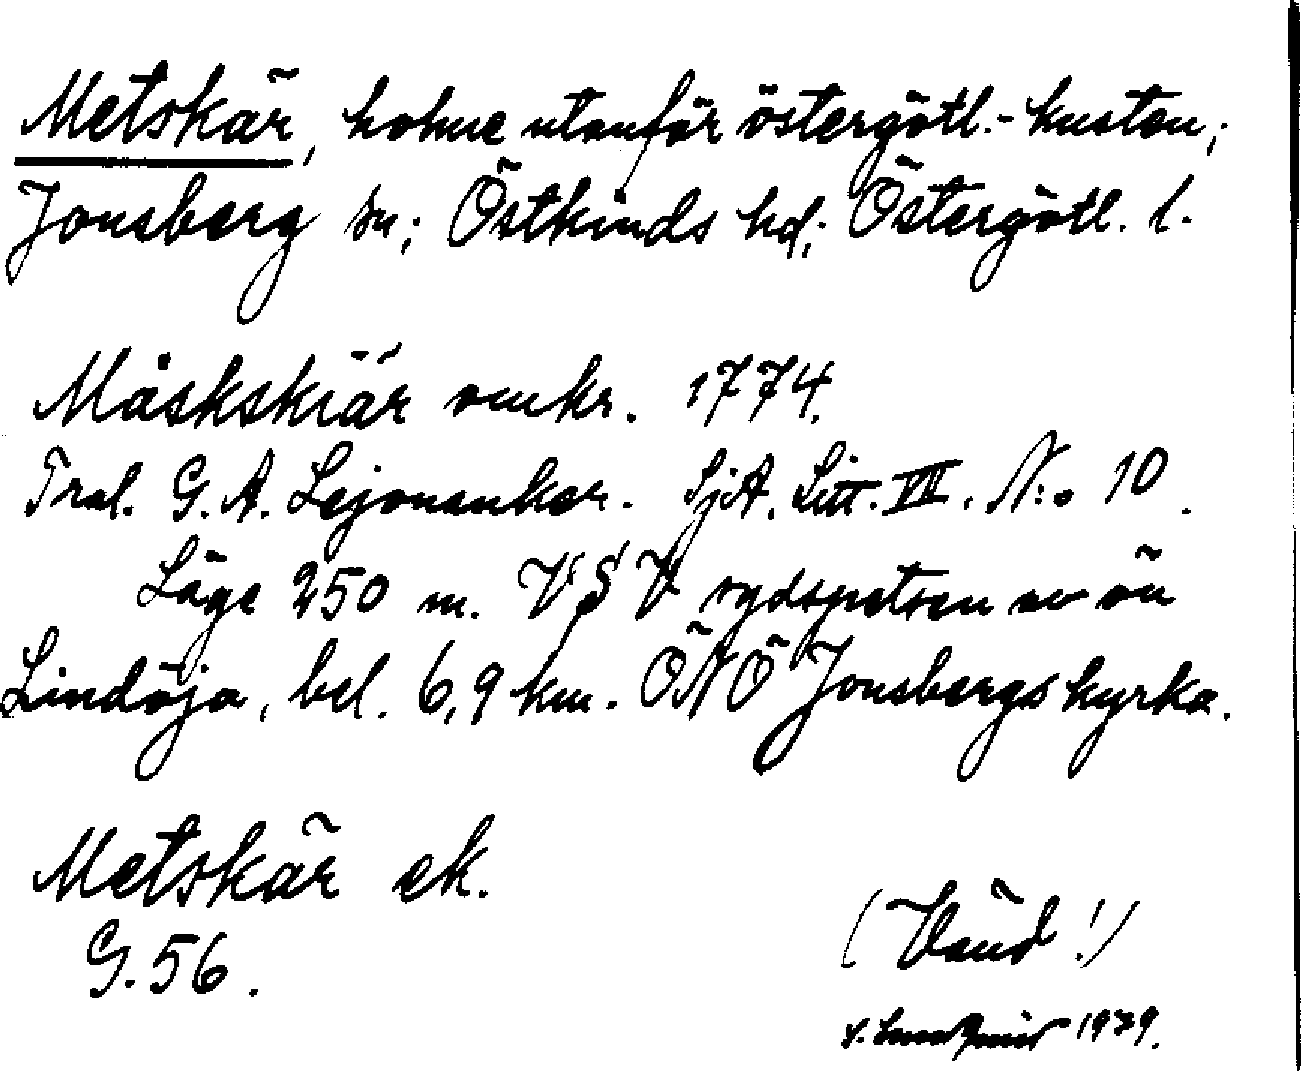 Metskär, holme utanför östergötl.-kusten;
Jonsberg sn; Östkinds hd; Östergötl. l.
Måskskiär omkr. 1774.
Tral. G. A. Lejonanker. SjA. Litt. VII. N:o 10.
Läge 250 m. VSV sydspetsen av ön
Lindöja, bel. 6,9 km. ÖNÖ Jonsbergs kyrka.
Metskär ek.
G. 56.
(Vänd!)
1929.